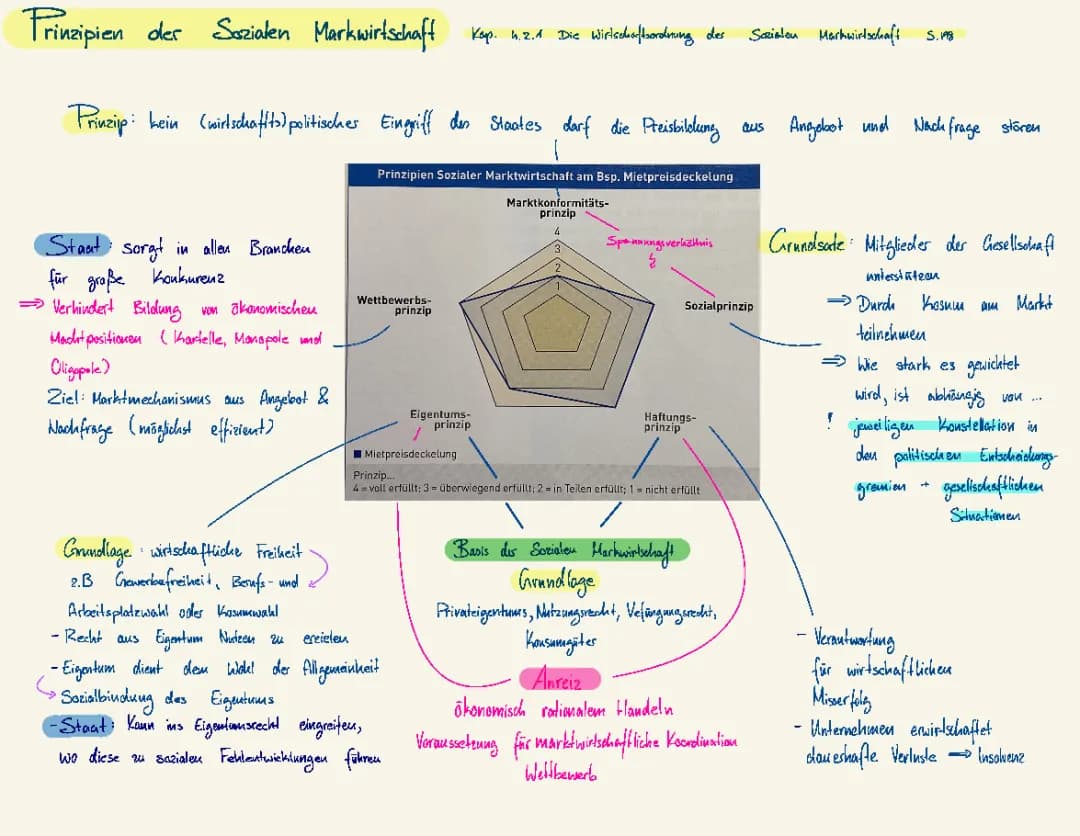 Prinzipien der Sozialen Markwirtschaft
Kap. 4.2.1 Die Wirtschaftsordnung der Sozialen Marktwirtschaft S.198
Prinziip: kein (wirtschaffts)politisches Eingriff des Staates darf die Preisbildung aus Angebot und Nachfrage stören
Prinzipien Sozialer Marktwirtschaft am Bsp. Mietpreisdeckelung
Marktkonformitäts-
prinzip
4
3
2
1
Spannungsverhältnis
Wettbewerbs-
prinzip
Sozialprinzip
Eigentums-
prinzip
Haftungs-
prinzip
Mietpreisdeckelung
Prinzip...
4 = voll erfüllt; 3 = überwiegend erfüllt; 2 = in Teilen erfüllt; 1 = nicht erfüllt
Staat: sorgt in allen Branchen
für große Konkurenz
⇒ Verhindert Bildung von ökonomischen
Machtpositionen (Kartelle, Monopole und
Oligopole)
Ziel: Marktmechanismus aus Angebot &
Nachfrage (möglichst effizient)
Grundsatz: Mitglieder der Gesellschaft
unterstützen
⇒ Durch Kosum am Markt
teilnehmen
⇒ Wie stark es gewichtet
wird, ist abhängig von ...
! jeweiligen Konstellation in
den politischen Entscheidungs-
gremien + gesellschaftlichen
Situationen
Grundlage: wirtschaftliche Freiheit
z.B Gewerbefreiheit, Berufs- und
Arbeitsplatzwahl oder Kosumwahl
- Recht aus Eigentum Nutzen zu erzielen
- Eigentum dient dem Wohl der Allgemeinheit
Sozialbindung des Eigentums
- Staat: Kann ins Eigentumsrecht eingreifen,
wo diese zu sozialen Fehlentwicklungen führen
Basis der Sozialen Markwirtschaft
Grundlage
Privateigentums, Nutzungsrecht, Vefüngungsrecht,
Konsumgüter
Anreiz
ökonomisch rationalem Handeln
Voraussetzung für marktwirtschaftliche Koordination
Wettbewerb
- Verantwortung
für wirtschaftlichen
Misserfolg
- Unternehmen erwirtschaftet
dauerhafte Verluste ⇒ Insolvenz